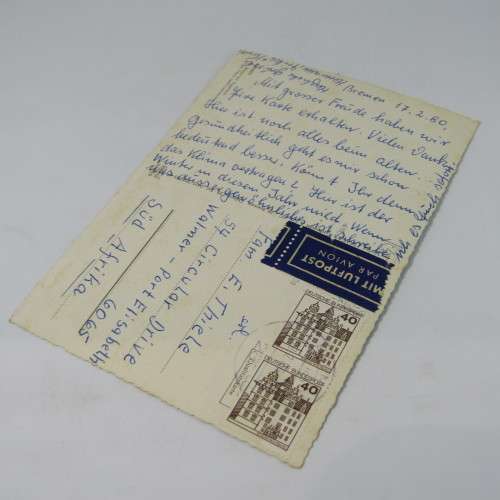 Bremen 17.2.80.
Mit grosser Freude haben wir
Ihre Karte erhalten. Vielen Dank
Hier ist noch alles beim alten.
Gesundheitlich geht es mir schon
bedeutend besser. Könnt Ihr denn
das Klima vertragen? Hier ist der
Winter in diesem Jahr mild. Wenn
MIT LUFTPOST
PAR AVION
Fam. E. Thiele
54 Circular Drive
Walmer - Port Elisabeth
6065
Süd Afrika
DEUTSCHE BUNDESPOST
40
DEUTSCHE BUNDESPOST
40